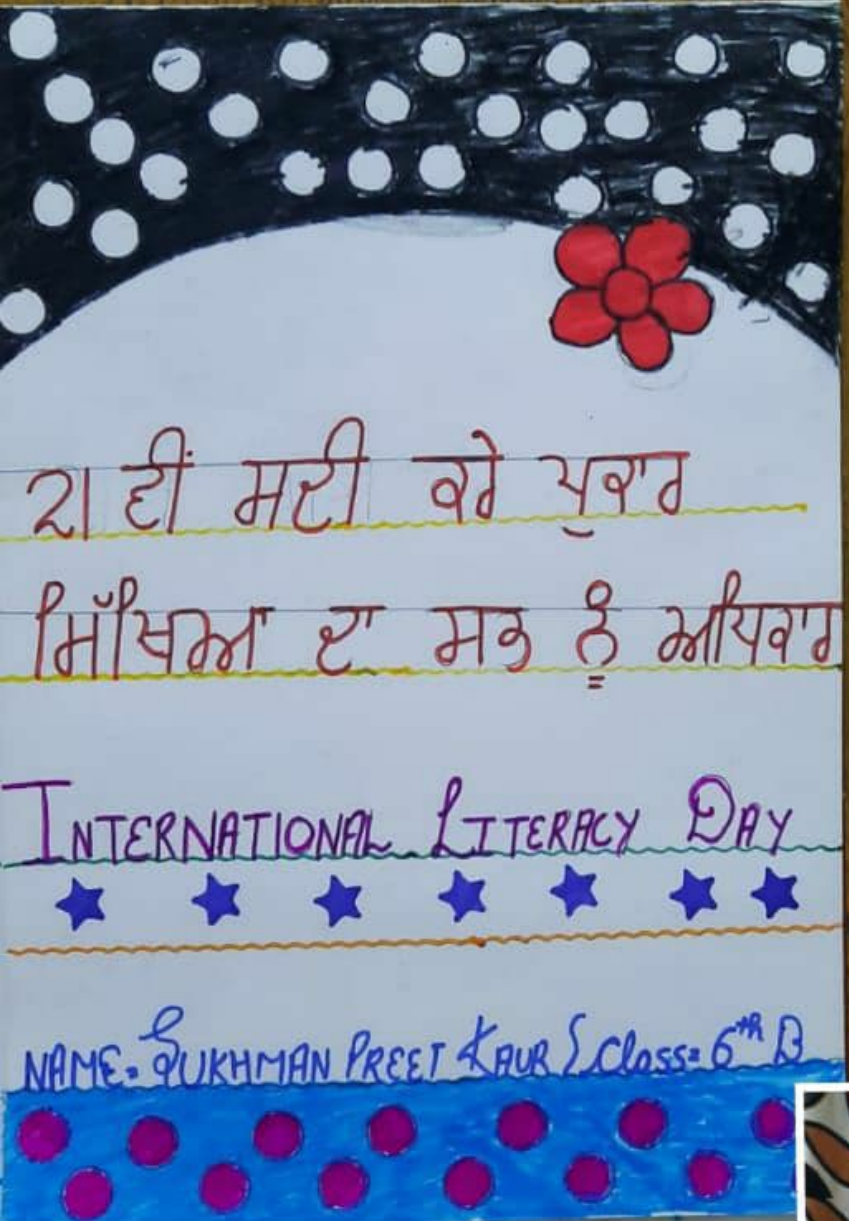 21 ਵੀਂ ਸਦੀ ਕਰੇ ਪੁਕਾਰ
ਸਿੱਖਿਆ ਦਾ ਸਭ ਨੂੰ ਅਧਿਕਾਰ
INTERNATIONAL LITERACY DAY
NAME= SUKHMAN PREET KAUR Class= 6TH B